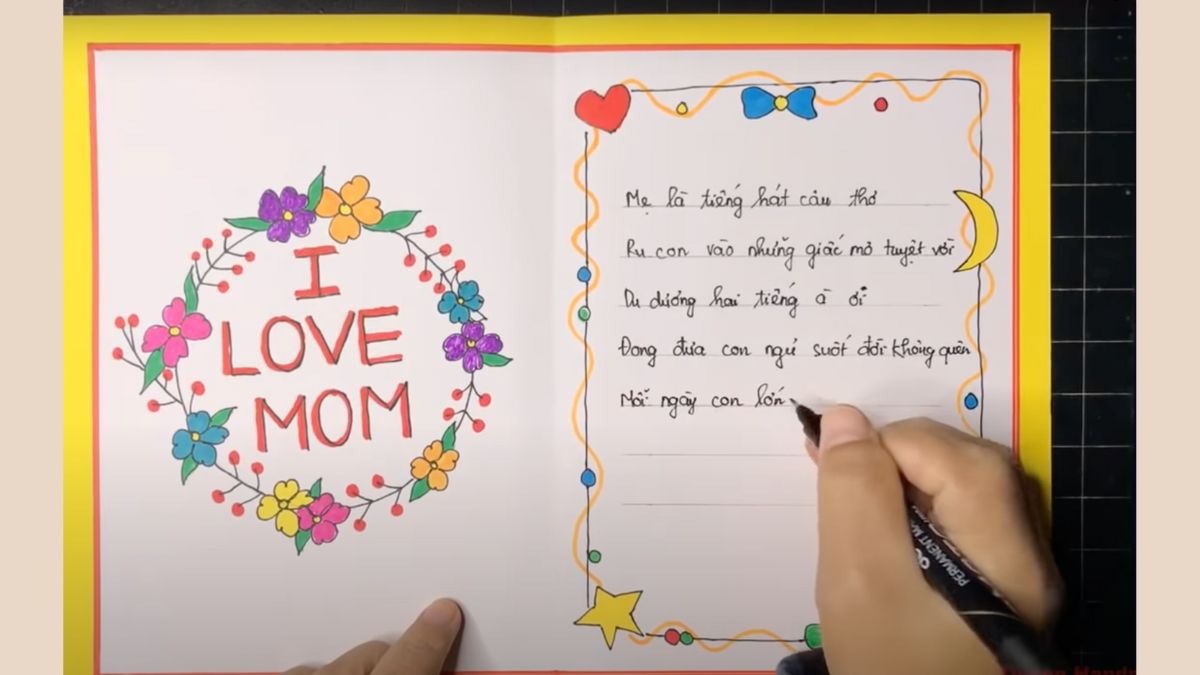 I
LOVE
MOM
Mẹ là tiếng hát câu thơ
Ru con vào những giấc mơ tuyệt vời
Du dương hai tiếng à ơi
Đong đưa con ngủ suốt đời không quên
Mỗi ngày con lớn
PERMANENT